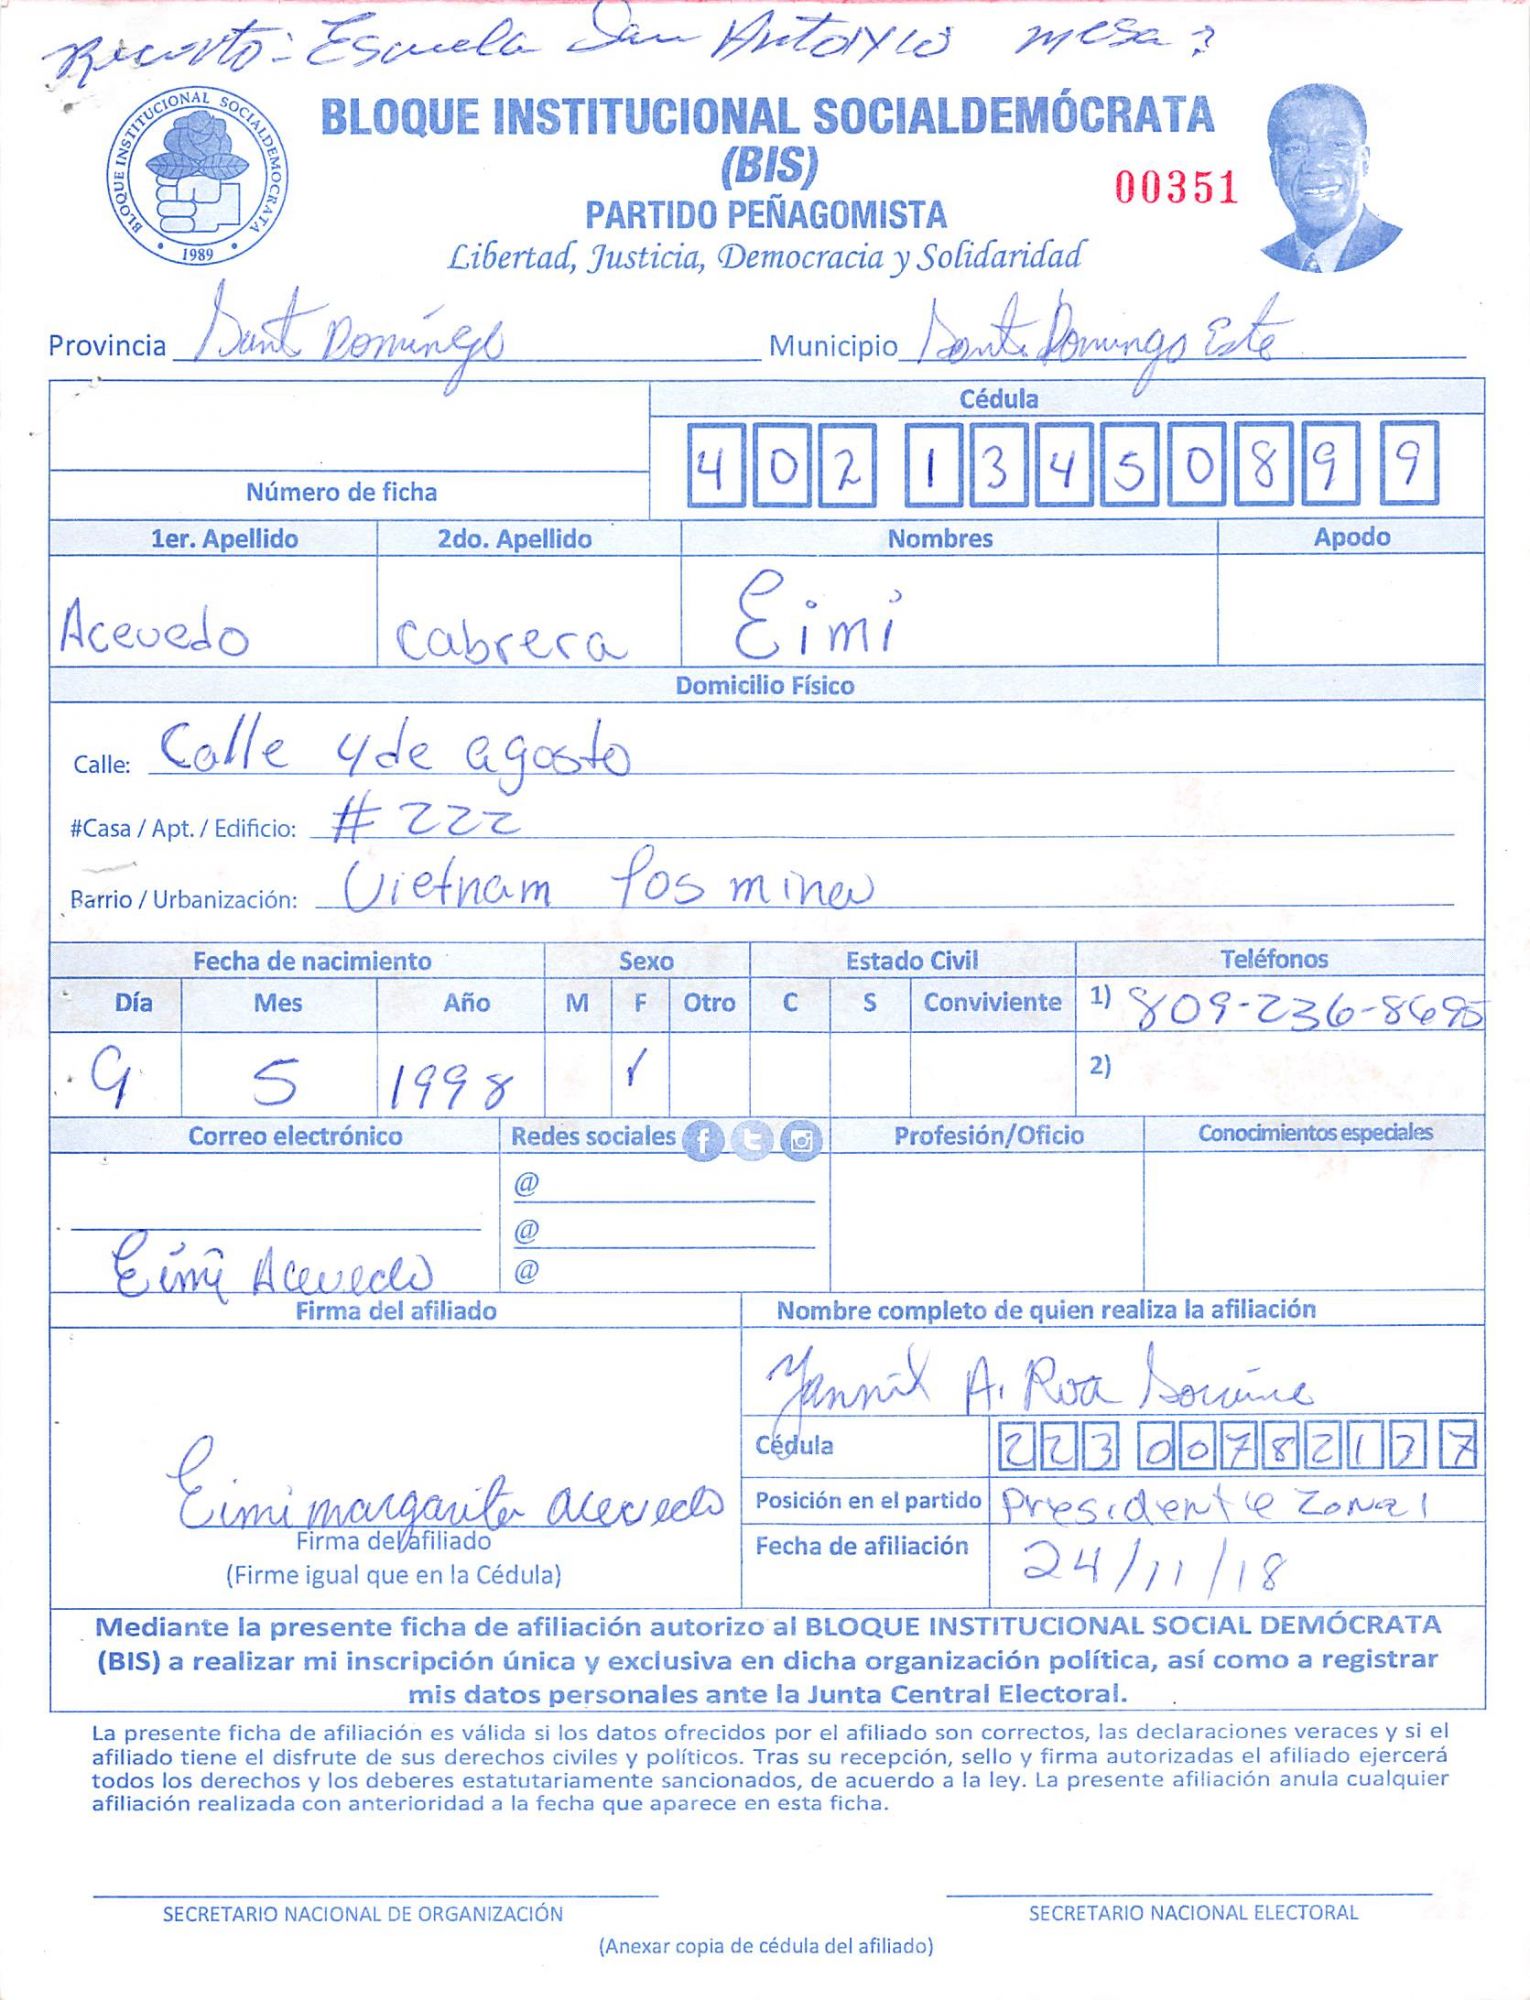 Recinto: Escuela San Antonio mesa ?
BLOQUE INSTITUCIONAL SOCIALDEMÓCRATA
(BIS)
PARTIDO PEÑAGOMISTA
Libertad, Justicia, Democracia y Solidaridad
00351
BLOQUE INSTITUCIONAL SOCIALDEMOCRATA
1989
Provincia Santo Domingo Municipio Santo Domingo Este
Cédula
402 1345089 9
Número de ficha
1er. Apellido 2do. Apellido Nombres Apodo
Acevedo Cabrera Eimi
Domicilio Físico
Calle: Calle 4 de agosto
#Casa / Apt. / Edificio: # 222
Barrio / Urbanización: Vietnam los mina
Fecha de nacimiento Sexo Estado Civil Teléfonos
Día Mes Año M F Otro C S Conviviente 1) 809-236-8695
9 5 1998 ✓ 2)
Correo electrónico Redes sociales Profesión/Oficio Conocimientos especiales
@
@
@
Eimi Acevedo
Firma del afiliado Nombre completo de quien realiza la afiliación
Yannil A. Roa
Cédula 223 0078213 7
Eimi margarita Acevedo
Posición en el partido Presidente zonal
Firma del afiliado
(Firme igual que en la Cédula)
Fecha de afiliación 24/11/18
Mediante la presente ficha de afiliación autorizo al BLOQUE INSTITUCIONAL SOCIAL DEMÓCRATA
(BIS) a realizar mi inscripción única y exclusiva en dicha organización política, así como a registrar
mis datos personales ante la Junta Central Electoral.
La presente ficha de afiliación es válida si los datos ofrecidos por el afiliado son correctos, las declaraciones veraces y si el
afiliado tiene el disfrute de sus derechos civiles y políticos. Tras su recepción, sello y firma autorizadas el afiliado ejercerá
todos los derechos y los deberes estatutariamente sancionados, de acuerdo a la ley. La presente afiliación anula cualquier
afiliación realizada con anterioridad a la fecha que aparece en esta ficha.
SECRETARIO NACIONAL DE ORGANIZACIÓN SECRETARIO NACIONAL ELECTORAL
(Anexar copia de cédula del afiliado)